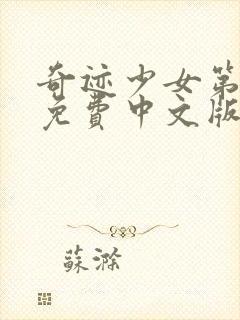 奇迹少女第
免費中文版
蘇滁